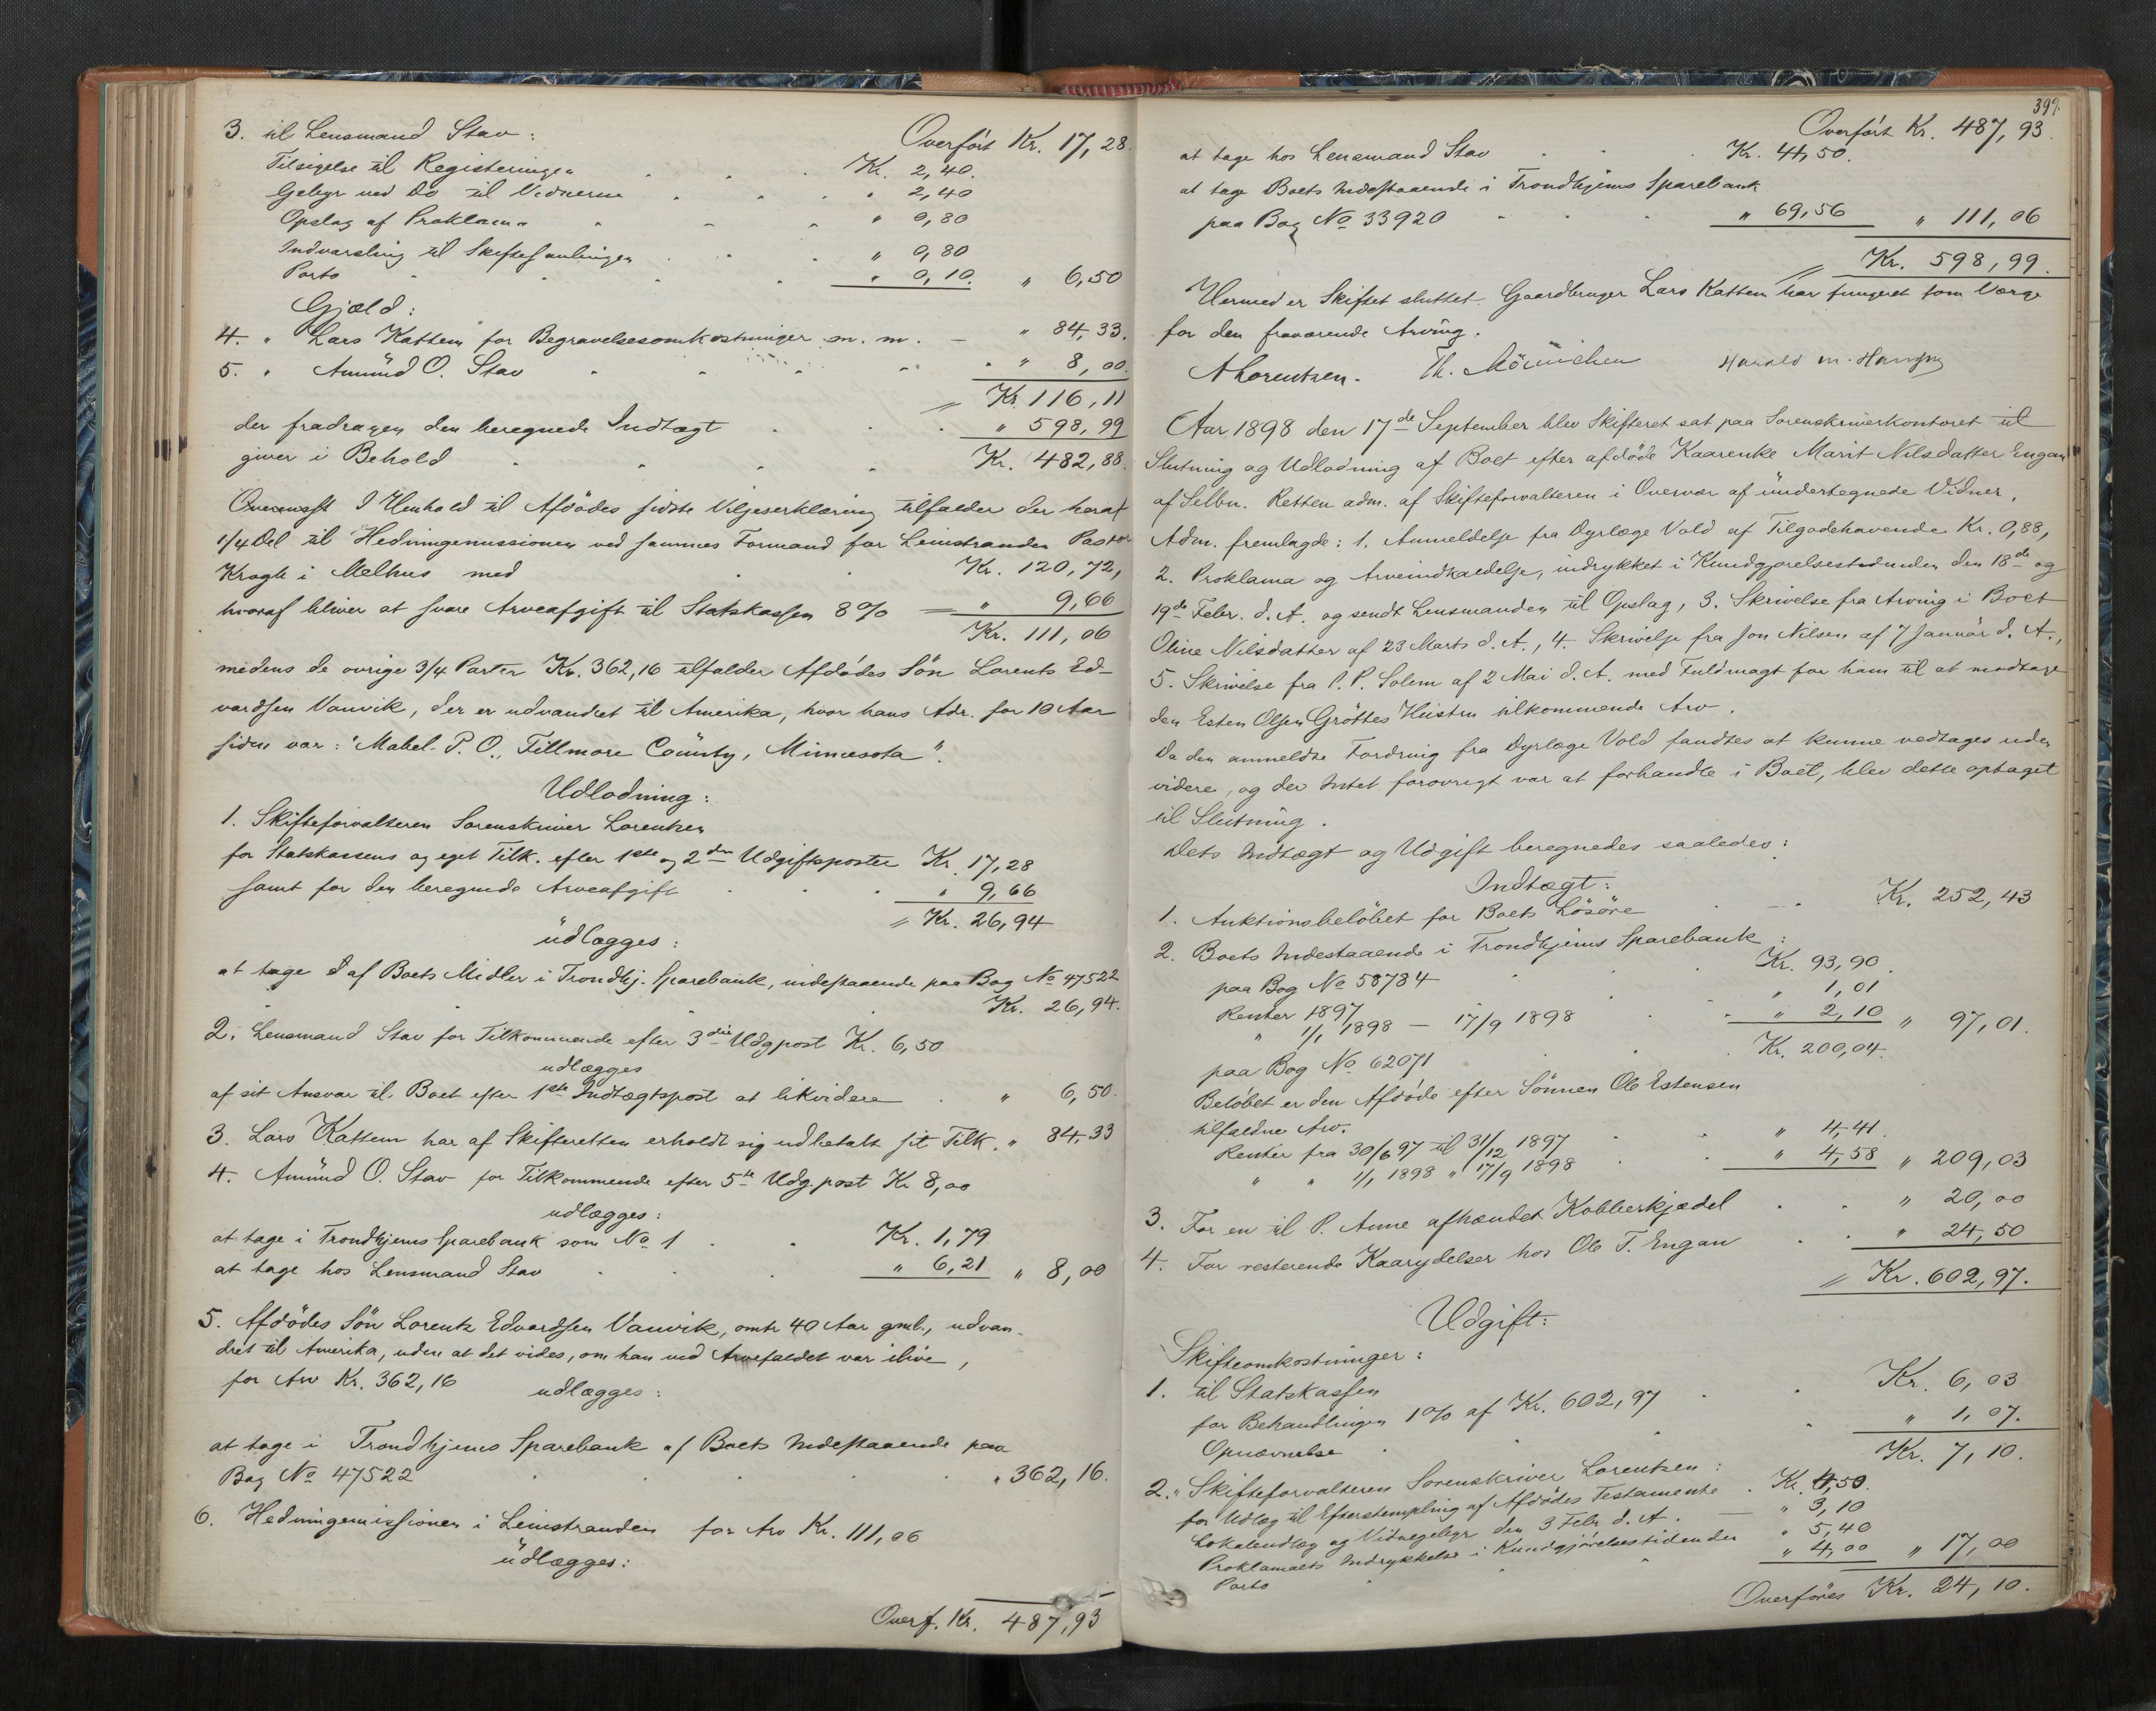 Overført Kr. 17,28.
3. til Lensmand Stav:
Tilsigelse til Registeringen Kr. 2,40.
Gebyr ved Do til Vidnerne " 2,40
Opslag af Proklama " 0,80
Indvarsling til Skiftesamlingen " 0,80
Porto " 0,10. " 6,50
Gjæld:
4. " Lars Kattem for Begravelsesomkostninger m. m. " 84,33.
5. " Amund O. Stav " 8,00.
Kr. 116,11
der fradragen den beregnede Indtægt " 598,99
giver i Behold Kr. 482,88.
I Henhold til Afdødes sidste Viljeserklæring tilfalder der heraf
1/4 Del til Hedningemissionen ved sammes Formand for Leinstranden Pastor
Krogh i Melhus med Kr. 120,72,
hvoraf bliver at svare Arveafgift til Statskassen 8% = " 9,66
Kr. 111,06
medens de øvrige 3/4 Parter Kr. 362,16 tilfalder Afdødes Søn Lorents Ed-
vardsen Vanvik, der er udvandret til Amerika, hvor hans Adr. for 10 Aar
siden var: "Mabel. P. O., Fillmore County, Minnesota".
Udlodning:
1. Skifteforvalteren Sorenskriver Lorentzen
for Statskassens og eget Tilk. efter 1ste og 2den Udgiftsposter Kr. 17,28
samt for den beregnede Arveafgift " 9,66
Kr. 26,94
udlægges:
at tage af Boets Midler i Trondhj. Sparebank, indestaaende paa Bog No 47522
Kr. 26,94.
2. Lensmand Stav for Tilkommende efter 3die Udgpost Kr. 6,50
udlægges
af sit Ansvar til Boet efter 1ste Indtægtspost at likvidere " 6,50.
3. Lars Kattem har af Skifteretten erholdt sig udbetalt sit Tilk. " 84,33
4. Amund O. Stav for Tilkommende efter 5te Udg. post Kr 8,00
udlægges:
at tage i Trondhjems Sparebank som No 1 Kr. 1,79
at tage hos Lensmand Stav " 6,21 " 8,00
5. Afdødes Søn Lorentz Edvardsen Vanvik, omtr 40 Aar gml., udvan-
dret til Amerika, uden at det vides, om han ved Arvefaldet var ilive,
for Arv Kr. 362,16 udlægges:
at tage i Trondhjems Sparebank af Boets Indestaaende paa
Bog No 47522 " 362,16.
6. Hedningemissionen i Leinstranden for Arv Kr. 111,06
udlægges:
Overf. Kr. 487,93
399.
Overført Kr. 487,93.
at tage hos Lensmand Stav Kr. 41,50.
at tage Boets Indestaaende i Trondhjems Sparebank
paa Bog No 33920 " 69,56 " 111,06
Kr. 598,99.
Hermed er Skiftet sluttet. Gaardbruger Lars Kattem har fungeret som Værge
for den fraværende Arving.
A Lorentzen. Th. Mörnichen Harald M. Hansen
Aar 1898 den 17de September blev Skifteret sat paa Sorenskriverkontoret til
Slutning og Udlodning af Boet efter afdøde Kaarenke Marit Nilsdatter Engan
af Selbu. Retten adm. af Skifteforvalteren i Overvær af undertegnede Vidner.
Adm. fremlagde: 1. Anmeldelse fra Dyrlæge Vold af Tilgodehavende Kr. 0,88,
2. Proklama og Arveindkaldelse, indrykket i Kundgjørelsestidenden den 18de og
19de Febr. d. A. og sendt Lensmanden til Opslag, 3. Skrivelse fra Arving i Boet
Oline Nilsdatter af 23 Marts d. A., 4. Skrivelse fra Jon Nilsen af 7 Januar d. A.,
5. Skrivelse fra P. P. Solem af 2 Mai d. A. med Fuldmagt for ham til at modtage
den Esten Olsen Grøttes Hustru tilkommende Arv.
Da den anmeldte Fordring fra Dyrlæge Vold fandtes at kunne vedtages uden
videre, og der Intet forøvrigt var at forhandle i Boet, blev dette optaget
til Slutning.
Dets Indtægt og Udgift beregnedes saaledes:
Indtægt:
1. Auktionsbeløbet for Boets Løsøre Kr. 252,43
2. Boets Indestaaende i Trondhjems Sparebank:
paa Bog No 58784 Kr. 93,90.
Renter 1897 " 1,01
" 1/1 1898 — 17/9 1898 " 2,10 " 97,01.
paa Bog No 62071 Kr. 200,04.
Beløbet er den Afdøde efter Sønnen Ole Estensen
tilfaldne Arv.
Renter fra 30/6 97 til 31/12 1897 " 4,41.
" " 1/1 1898 " 17/9 1898 " 4,58 " 209,03
3. For en til P. Aune afhændet Kobberkjedel " 20,00
4. For resterende Kaarydelser hos Ole T. Engan " 24,50
Kr. 602,97.
Udgift:
Skifteomkostninger:
1. til Statskassen
for Behandlingen 1% af Kr. 602,97 Kr. 6,03
Opnævnelse " 1,07.
Kr. 7,10.
2. " Skifteforvalteren Sorenskriver Lorentzen:
for Udlæg til Efterstempling af Afdødes Testamente Kr. 4,50.
Lokaleudlæg og Vidnegebyr den 3 Febr d. A. " 3,10
Proklamaets Indrykkelse i Kundgjørelsestidenden " 5,40
Porto " 4,00 " 17,00
Overføres Kr. 24,10.